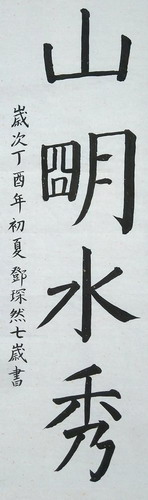 山明水秀
歲次丁酉年初夏鄧琛然七歲書